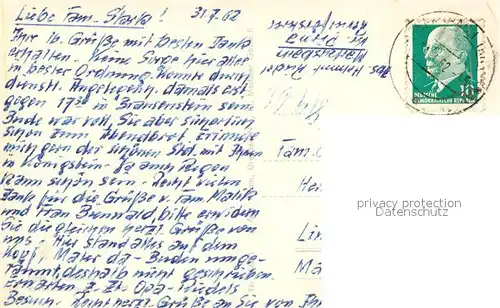 Liebe Fam. Starke! 31.7.62
Ihre lb. Grüße mit besten Dank
erhalten. Keine Sorge hier alles
in bester Ordnung. Konnte durch
dienstl. Angelegenh. damals erst
gegen 17 30 in Bräunstein sein.
Bude war voll, Sie aber sicherlich
schon zum Abendbrot. Erinnere
mich gern der schönen Std. mit Ihnen
in Königstein. Ja auch Regen
kann schön sein. Recht vielen
Dank für die Grüße v. Fam. Matik
und Frau Brenwald, bitte erwidern
Sie die gleichen herzl. Grüße von
uns. Hier stand alles auf dem
Kopf. Maler da - Buden umge-
räumt, deshalb nicht geschrieben.
Erwarten z. Zt. Opa-Rudels
Besuch. Recht herzl. Grüße an Sie von
Abs. Helmut Rudel
Kr. Pirna
DEUTSCHE
DEMOKRATISCHE REPUBLIK
10
Fam.
privacy protection
Datenschutz